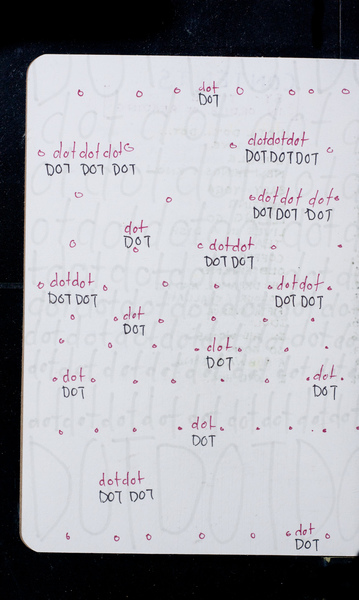 dot
DOT
dotdotdot dotdotdot
DOT DOT DOT DOTDOTDOT
dotdot dot
DOTDOT DOT
dot
DOT
dotdot
DOT DOT
dotdot dotdot
DOT DOT DOT DOT
dot
DOT
dot
DOT
dot dot
DOT DOT
dot
DOT
dotdot
DOT DOT
dot
DOT